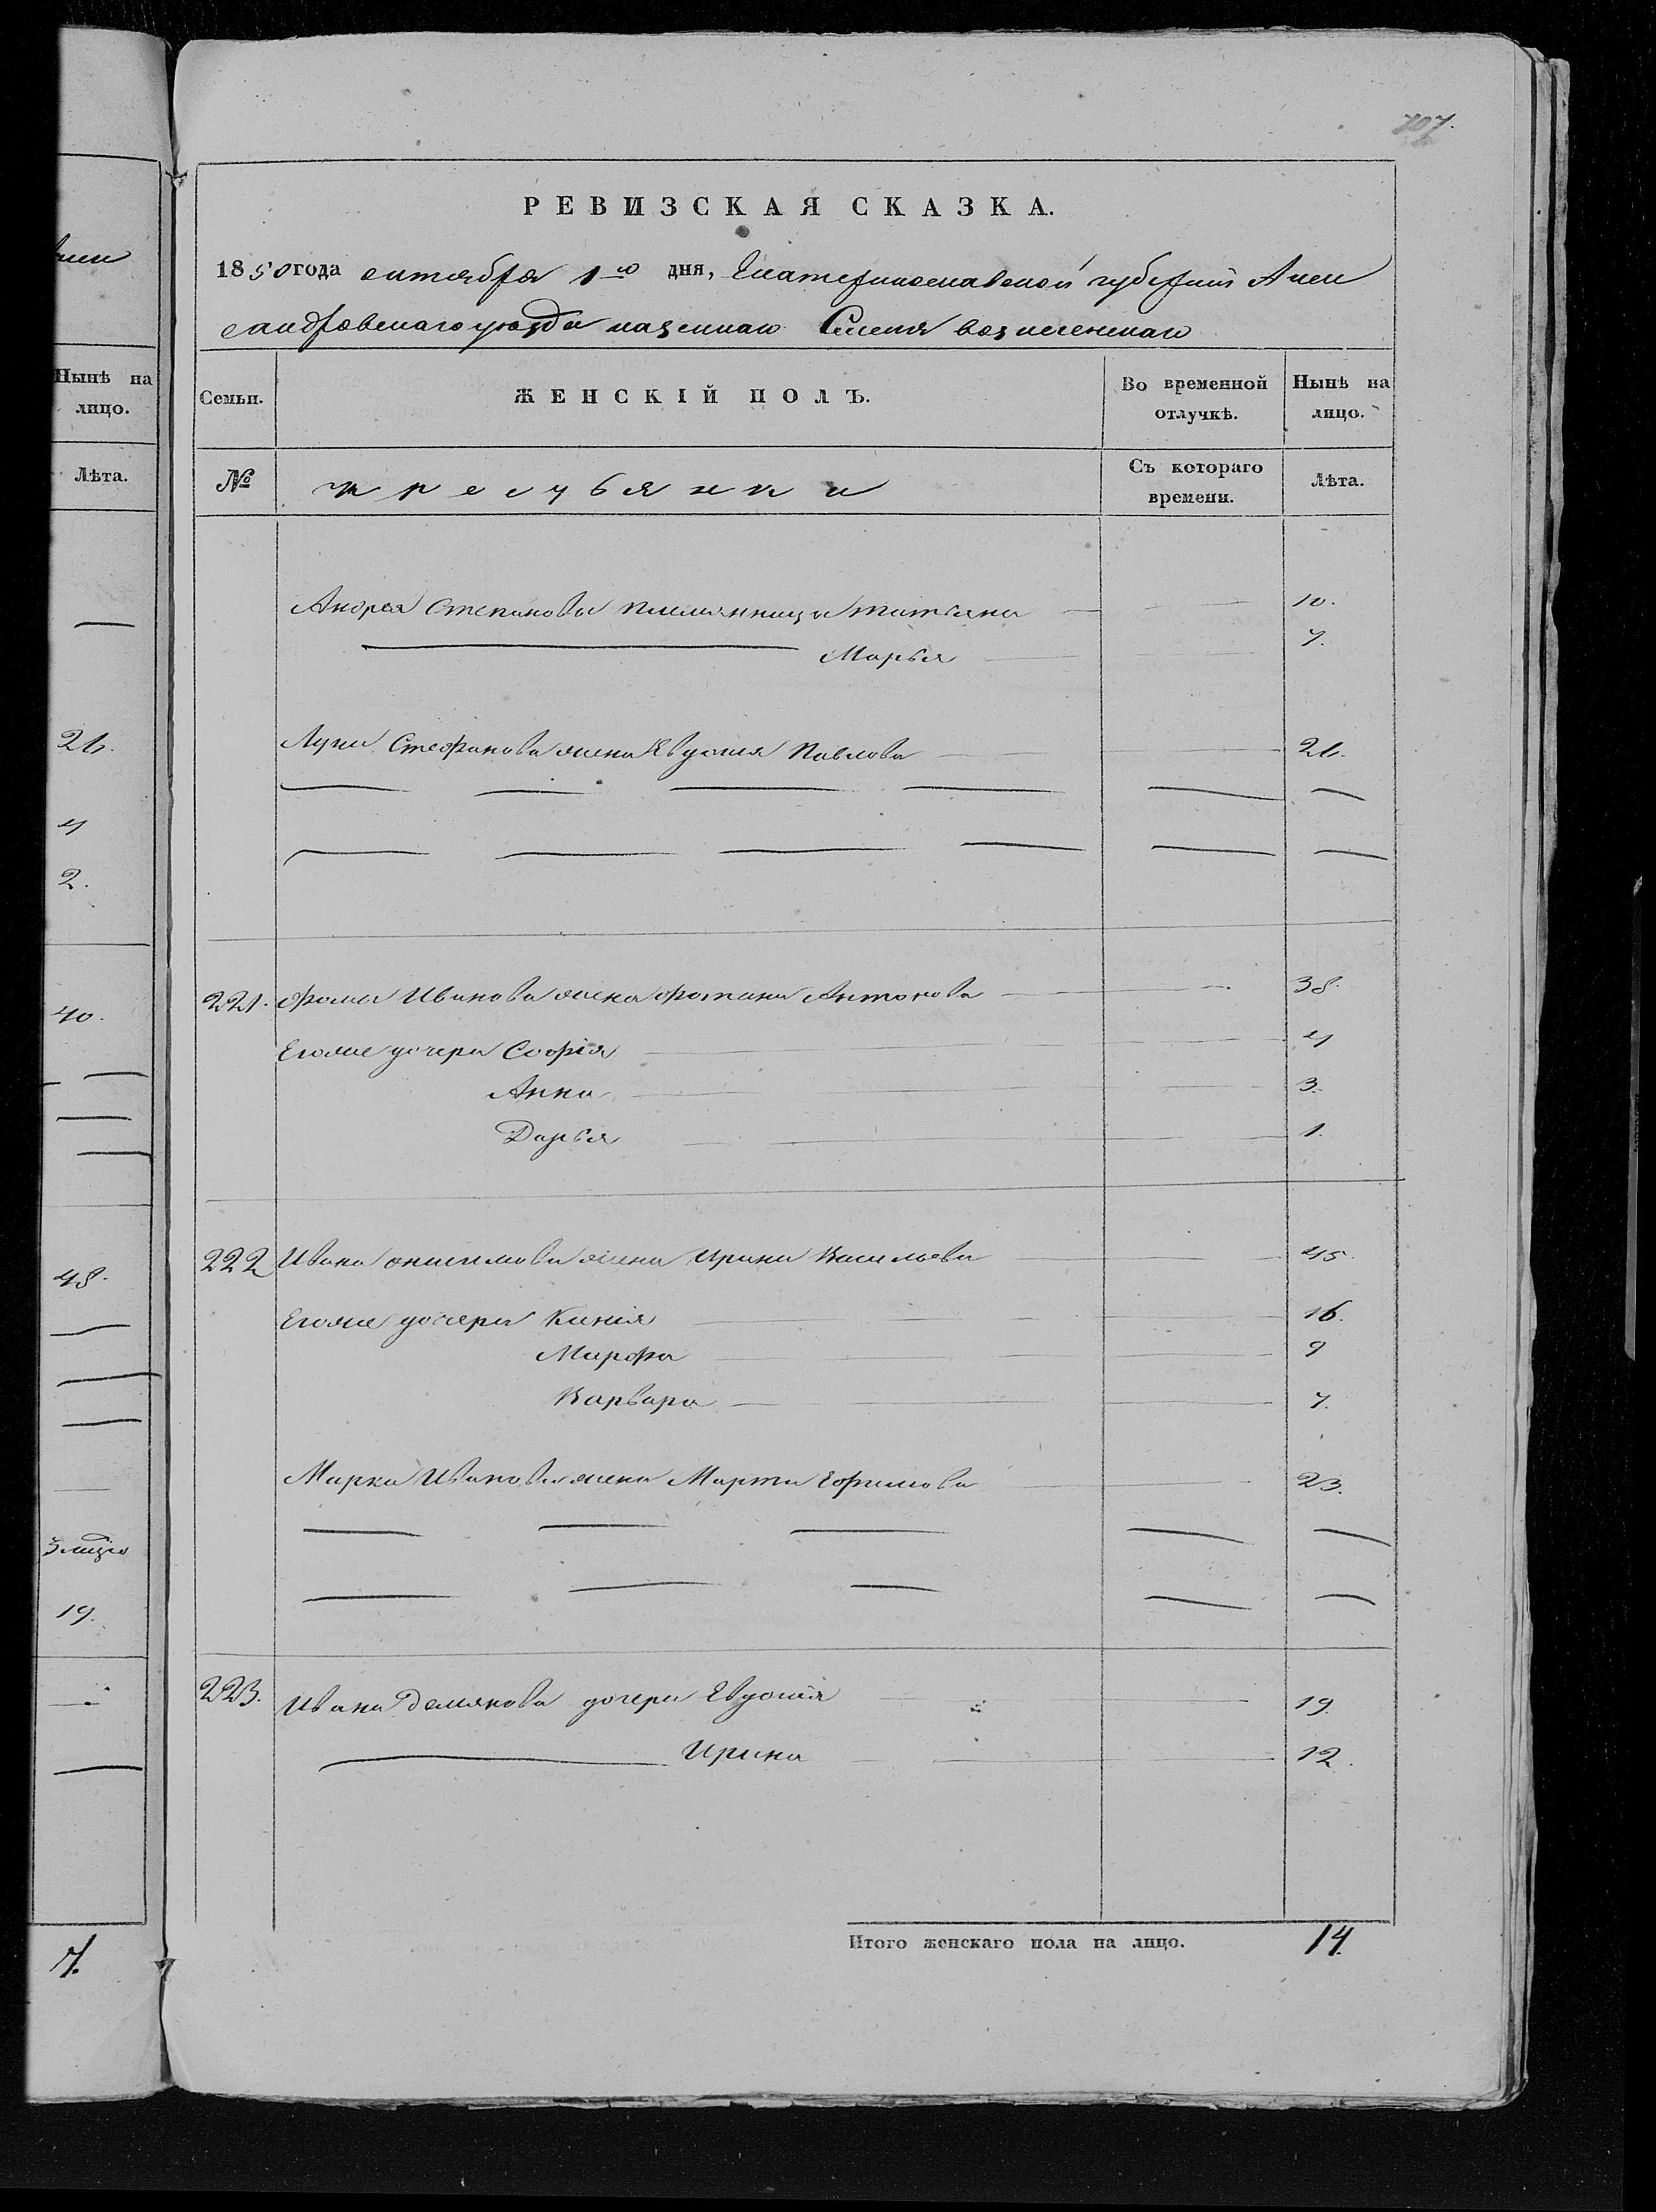 707.
РЕВИЗСКАЯ СКАЗКА.
1850 года октября 1го дня, Екатеринославской губернии Алек
сандровскаго уезда казеннаго Селения вознесенскаго
Нынѣ на лицо.
Семьи.
ЖЕНСКІЙ ПОЛЪ.
Во временной отлучкѣ.
Нынѣ на лицо.
Лѣта.
№
крестьянки
Съ котораго времени.
Лѣта.
Андрея Степанова племянница татьяна 10.
Марья 7.
26.
Луки Стефанова жена Евдокия Павлова 26.
4
2.
221. фомы Иванова жена фотина Антонова 38.
40.
Егоже дочери Софія 4
Анна 3.
Дарья 1.
222 Ивана онисимова жена Ирина Васильева 45.
48.
Егоже дочери Ксенія 16.
Марфа 9
Варвара 7.
Марка Иванова жена Марта Ефимова 23.
19.
223. Ивана Демянова дочери Евдокія 19.
Ирина 12.
7.
Итого женскаго пола на лицо. 14.